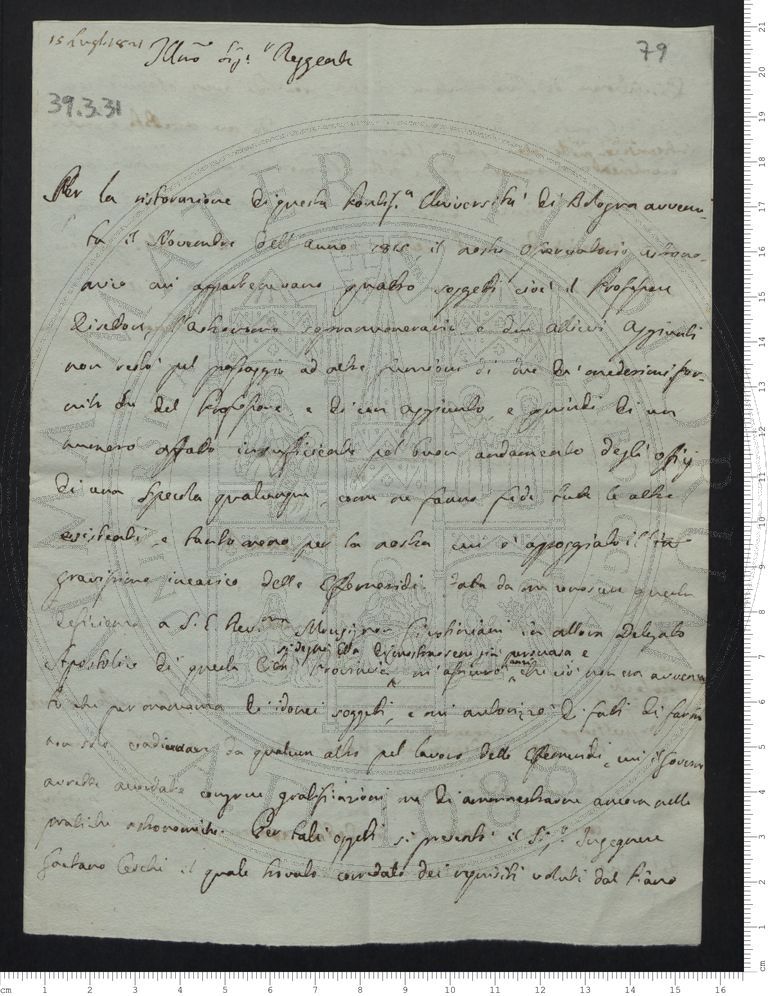 15 Lugl. 1821
79
Illmo Sig.r Reggente
39.3.31
Per la ristorazione di questa Pontif.a Università di Bologna avvenu-
ta il Novembre dell'anno 1815 il nostro Osservatorio astrono-
mico cui appartenevano quattro soggetti cioè il Professore
Direttore, l'astronomo sopranumerario e due allievi Aggiunti
non restò pel passaggio ad altre funzioni di due de' medesimi for-
nito che del Professore e di un aggiunto, e quindi di un
numero affatto insufficiente pel buon andamento degli offizj
di una Specola qualunque, come ne fanno fede tutte le altre
esistenti, e tanto meno per la nostra cui è appoggiato il
gravissimo incarico delle Effemeridi. Fatta da me conoscere questa
deficienza a S. E. Rev.ma Monsignor Giustiniani in allora Delegato
si degnò Ella di mostrarsene persuasa e
Apostolico di questa Provincia mi assicurò anzi che ciò non era avvenu-
to che per mancanza di idonei soggetti, e mi autorizzò di fatti di farmi
non solo coadiuvare da qualcun altro pel lavoro delle Effemeridi, cui il Governo
avrebbe accordate congrue gratificazioni ma di ammaestrarne ancora nelle
pratiche astronomiche. Per tali oggetti si presentò il Sig.r Ingegnere
Gaetano Ceschi il quale trovato corredato dei requisiti voluti dal Piano